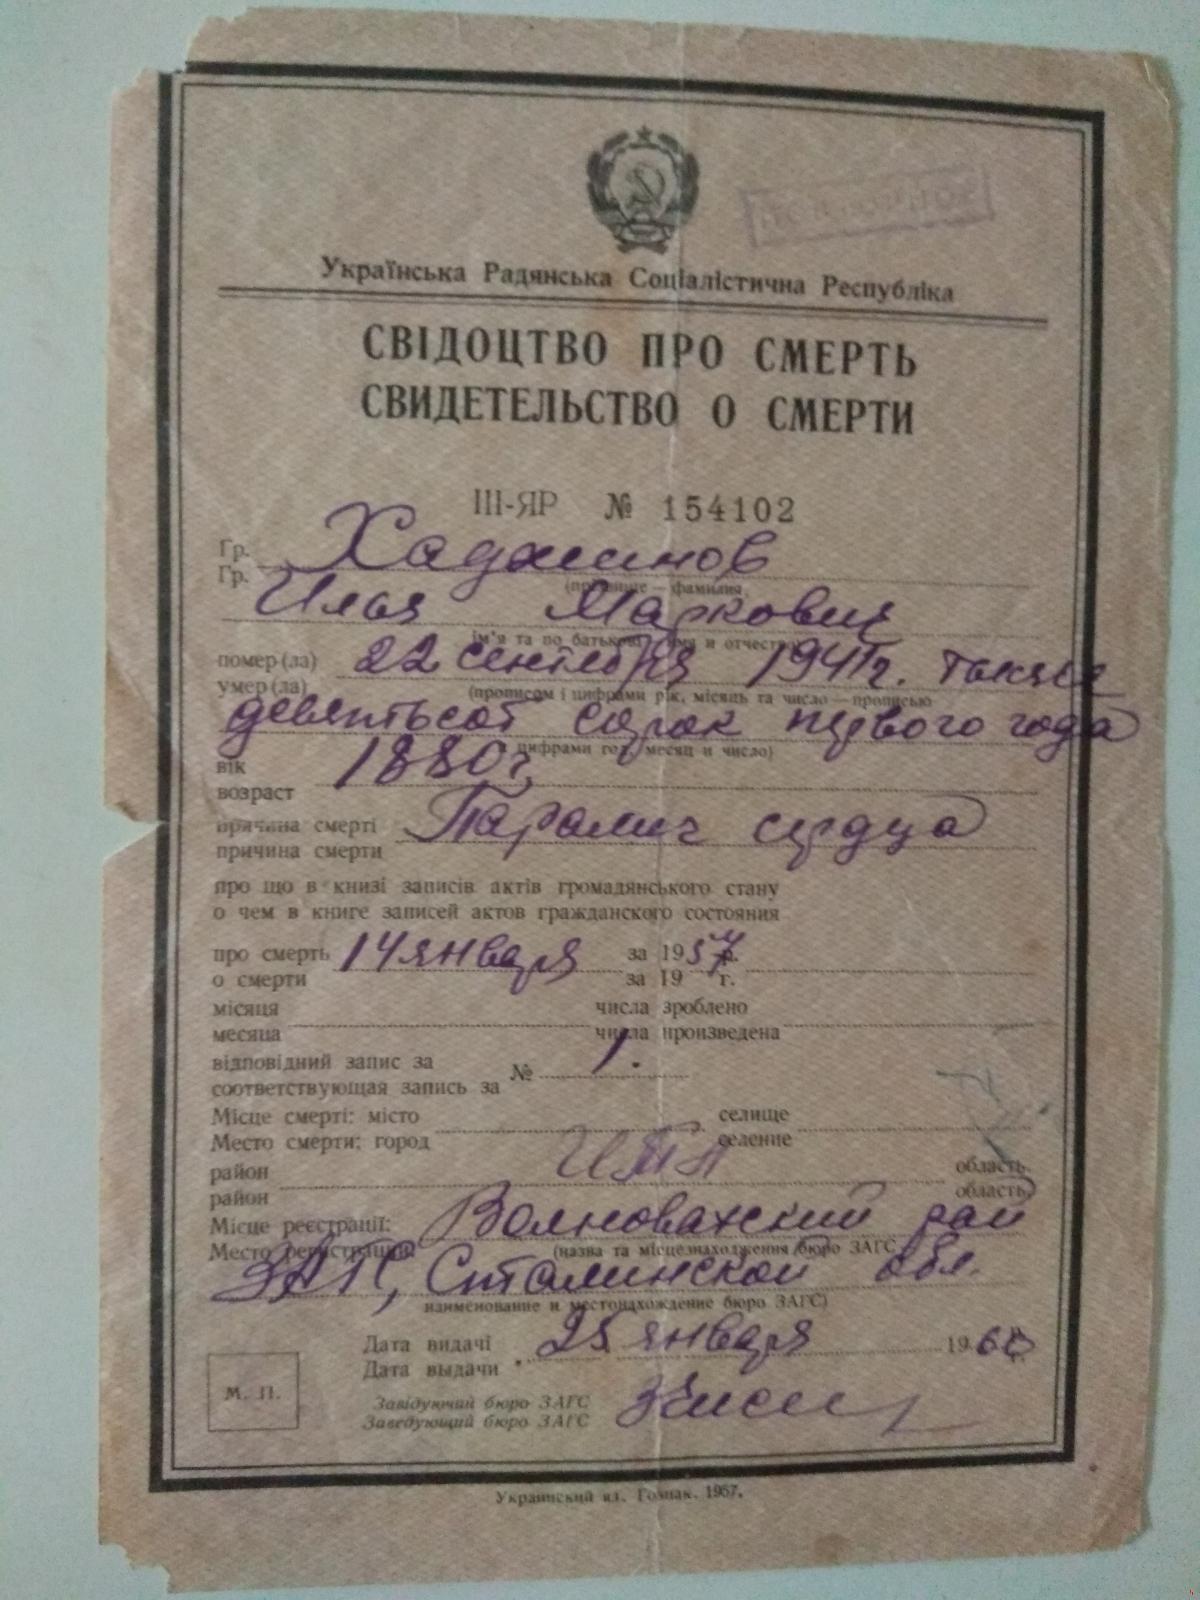 ПОВТОРНОЕ
Українська Радянська Соціалістична Республіка
СВІДОЦТВО ПРО СМЕРТЬ
СВИДЕТЕЛЬСТВО О СМЕРТИ
III-ЯР № 154102
Гр.
Гр. Хаджинов
(прізвище — фамилия,
Илья Маркович
ім'я та по батькові — имя и отчество)
помер(ла)
умер(ла) 22 сентября 1941 г. тысяча
(прописом і цифрами рік, місяць та число — прописью
девятьсот сорок первого года
и цифрами год, месяц и число)
вік
возраст 1880 г,
причина смерті
причина смерти Паралич сердца
про що в книзі записів актів громадянського стану
о чем в книге записей актов гражданского состояния
про смерть 14 января за 1957 р.
о смерти за 19 г.
місяця числа зроблено
месяца числа произведена
відповідний запис за
соответствующая запись за № 1.
Місце смерті: місто селище
Место смерти: город селение
район область
район область
Місце реєстрації: Волновахский рай
Место регистрации: (назва та місцезнаходження бюро ЗАГС
ЗАГС, Сталинской обл.
наименование и местонахождение бюро ЗАГС)
Дата видачі
Дата выдачи 25 января 1960
М. П.
Завідуючий бюро ЗАГС
Заведующий бюро ЗАГС
Украинский изд. Гознак. 1957.